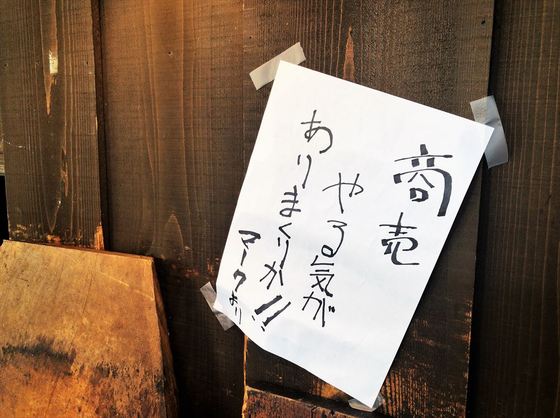 商売
やる気が
ありまくりか!!
マークより